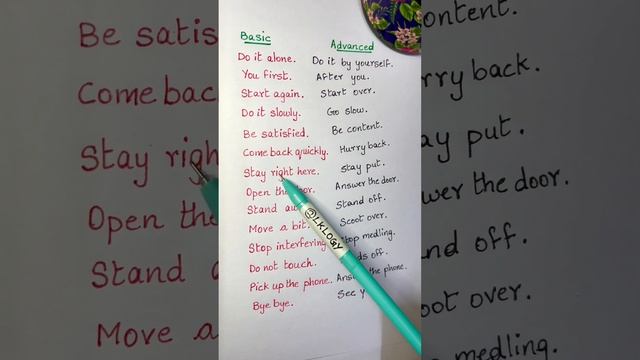 Basic Advanced
Do it alone. Do it by yourself.
You first. After you.
Start again. Start over.
Do it slowly. Go slow.
Be satisfied. Be content.
Come back quickly. Hurry back.
Stay right here. Stay put.
Open the door. Answer the door.
Stand Stand off.
Move a bit. Scoot over.
Stop interfering medling.
Do not touch. off.
Pick up the phone. the phone.
Bye bye. See
@LKLOGY
Be satis
Come back
Stay right
Open the
Stand
Move a
ontent.
rry back.
ay put.
wer the door.
nd off.
oot over.
medling.